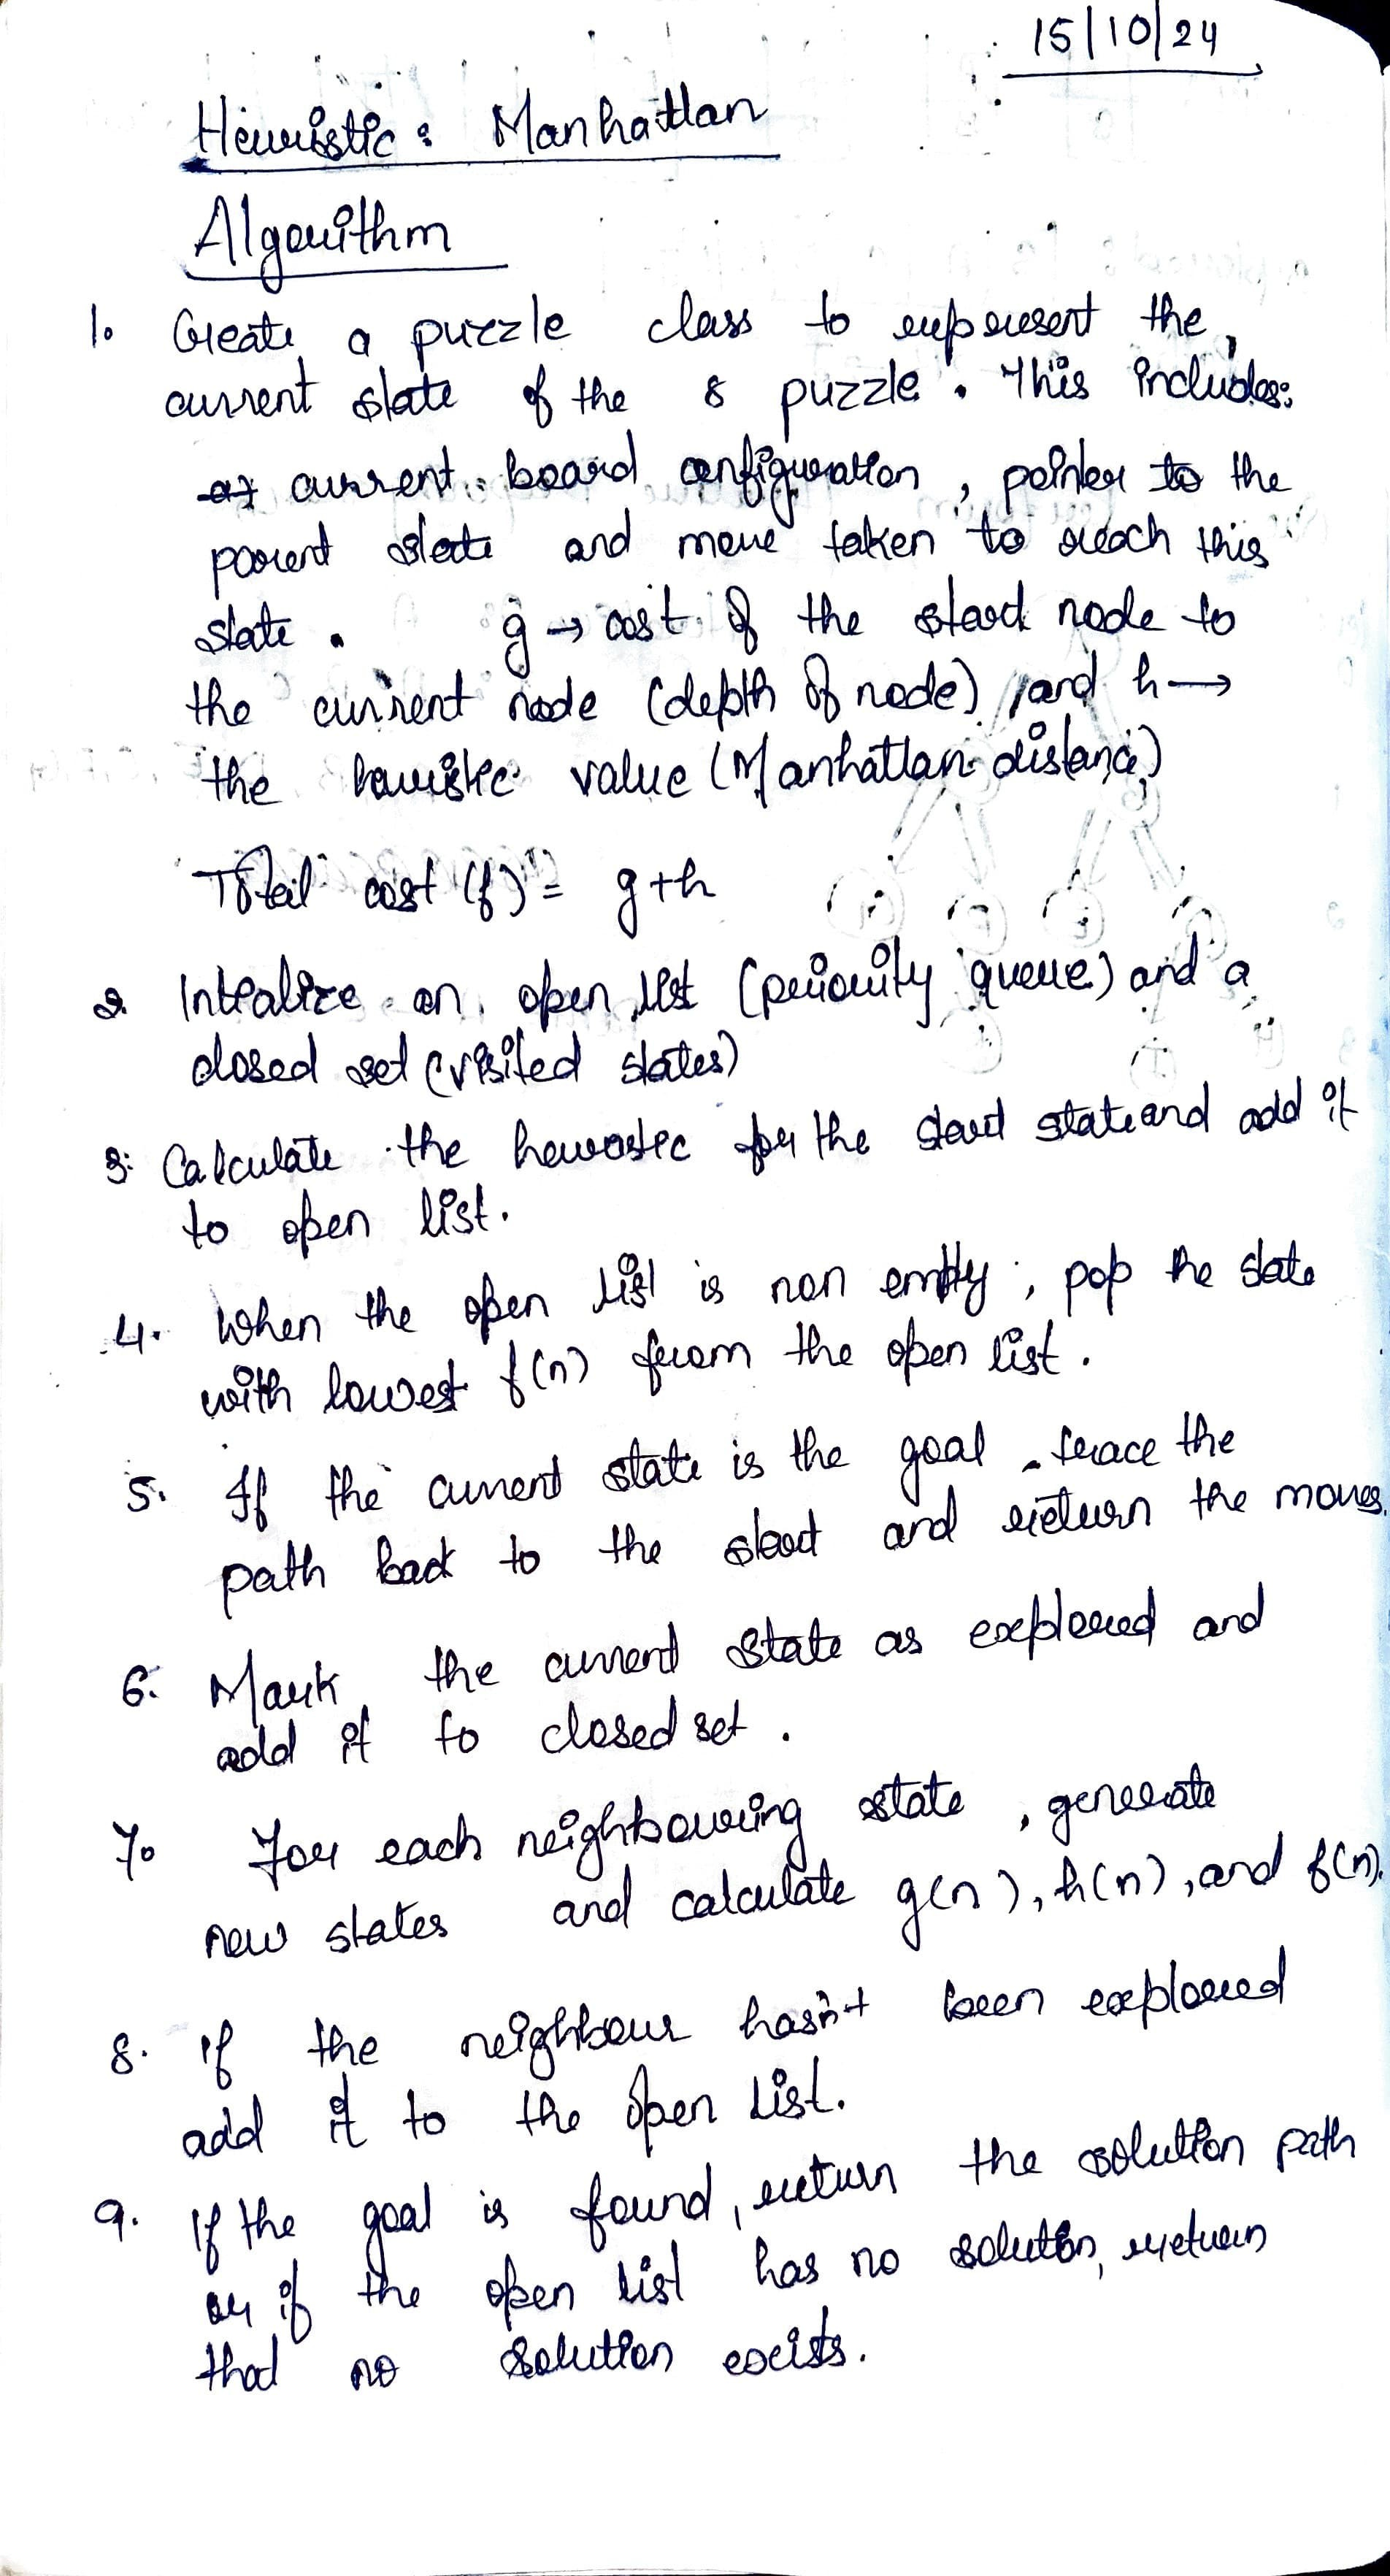 15/10/24
Heuristic: Manhattan
Algorithm
1. Create a puzzle class to represent the
current state of the 8 puzzle. This includes:
current board configuration, pointer to the
parent state and move taken to reach this
state. g → cost of the start node to
the current node (depth of node) and h →
the heuristic value (Manhattan distance)
Total cost (f) = g+h
2. Intialize an open list (priority queue) and a
closed set (visited states)
3. Calculate the heurostic for the start state and add it
to open list.
4. When the open list is non empty, pop the state
with lowest f(n) from the open list.
5. If the current state is the goal, trace the
path back to the start and return the moves.
6. Mark the current state as explored and
add it to closed set.
7. For each neighbouring state, generate
new states and calculate g(n), h(n), and f(n).
8. If the neighbour hasn't been explored
add it to the open list.
9. If the goal is found, return the solution path
or if the open list has no solution, return
that no solution exists.